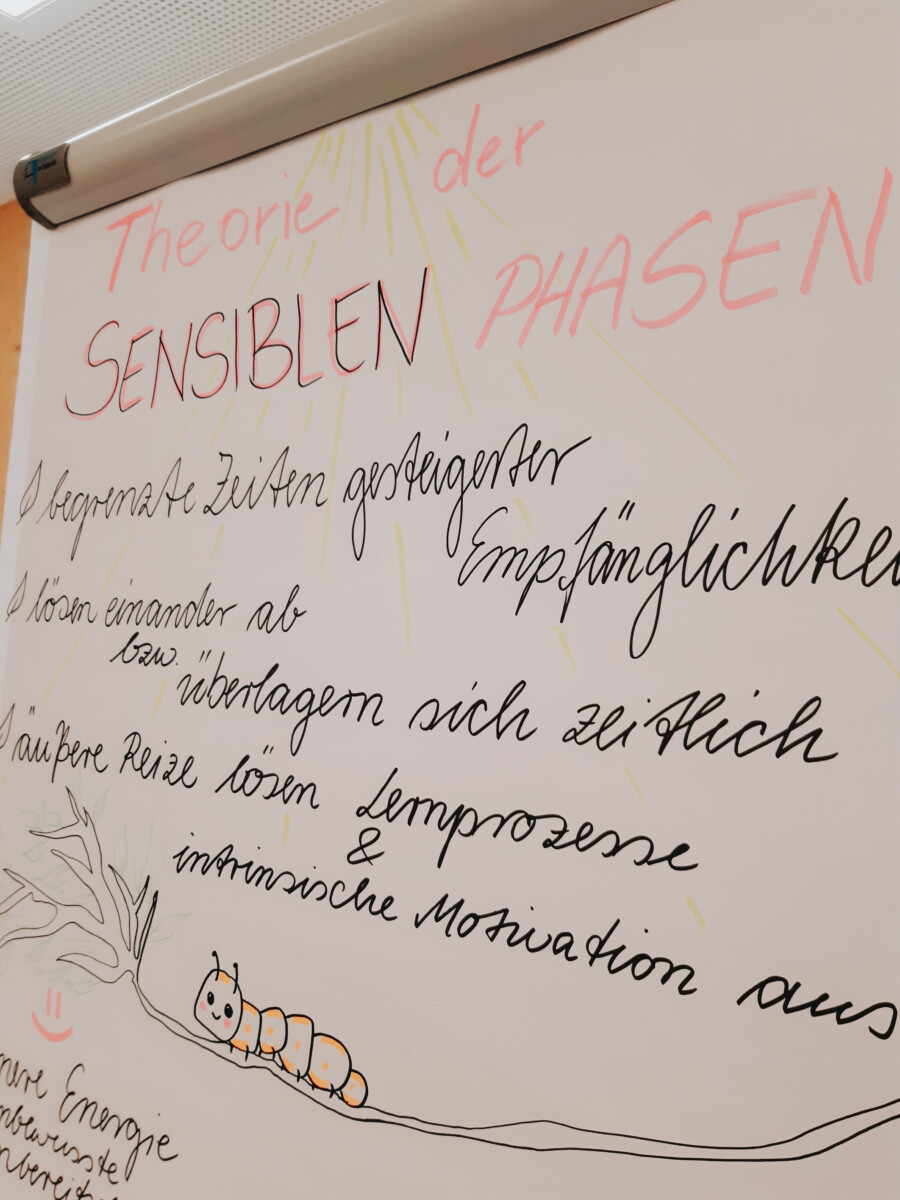 Theorie der
SENSIBLEN PHASEN
begrenzte Zeiten gesteigerter
Empfänglichkei
lösen einander ab
bzw.
überlagern sich zeitlich
äußere Reize lösen Lernprozesse
&
intrinsische Motivation aus
Energie